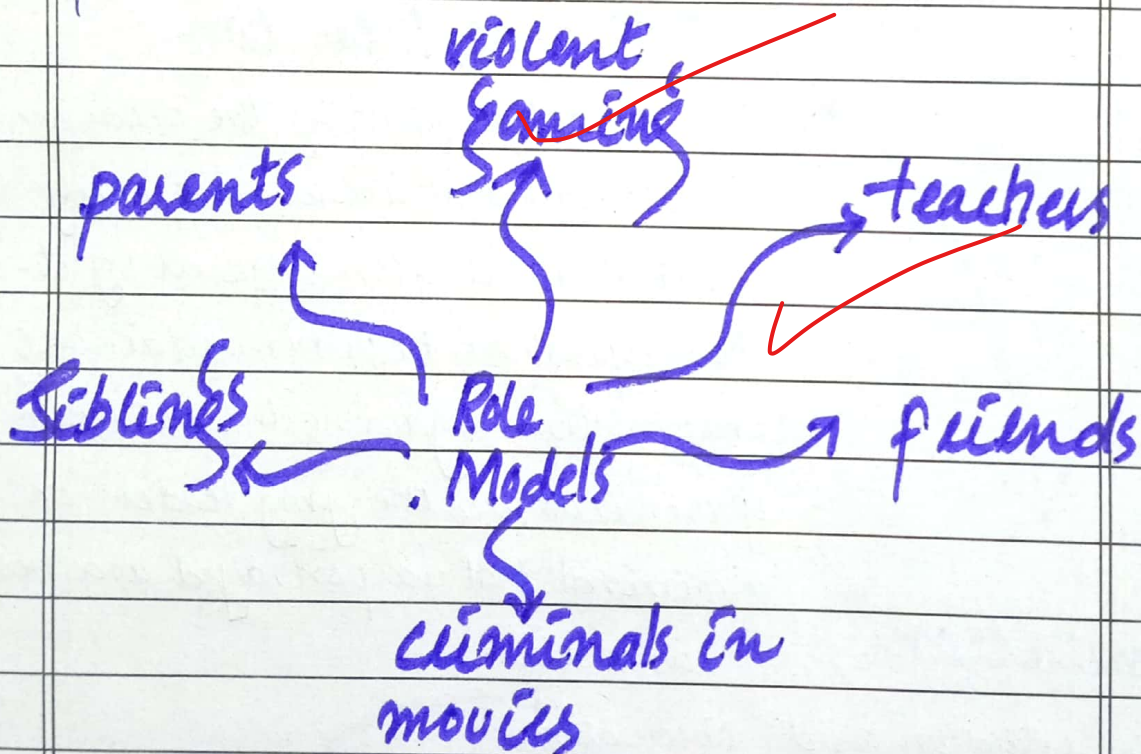 violent
Gaming
parents
teachers
Siblings
Role
Models
friends
criminals in
movies